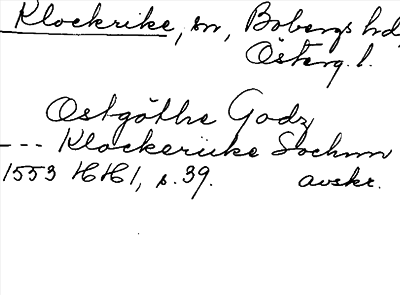 Klockrike, sn, Bobergs hd,
Österg. l.
Östgöthe Godz
--- Klockeriike Sochnn
1553 HH1, s. 39. avskr.